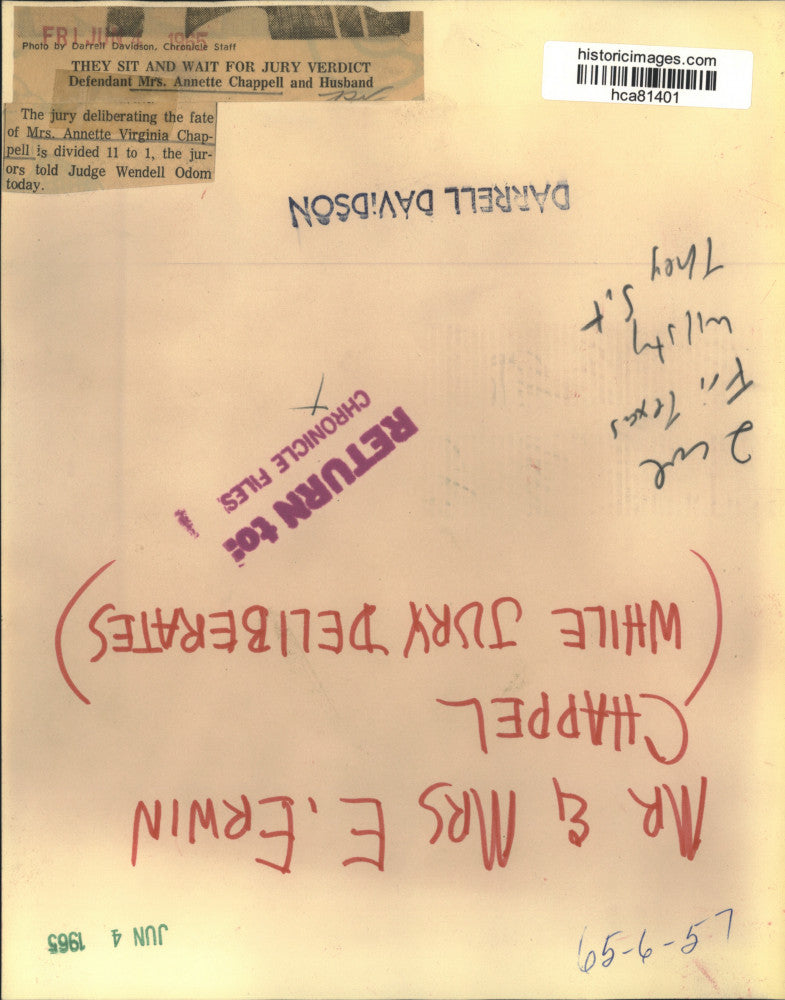 FRI JUN 4 1965
Photo by Darrell Davidson, Chronicle Staff
THEY SIT AND WAIT FOR JURY VERDICT
Defendant Mrs. Annette Chappell and Husband
The jury deliberating the fate
of Mrs. Annette Virginia Chap-
pell is divided 11 to 1, the jur-
ors told Judge Wendell Odom
today.
historicimages.com
hca81401
DARRELL DAVIDSON
They
Sit
2 col
RETURN to:
CHRONICLE FILES
MR & MRS E. ERWIN
CHAPPEL
(WHILE JURY DELIBERATES)
JUN 4 1965